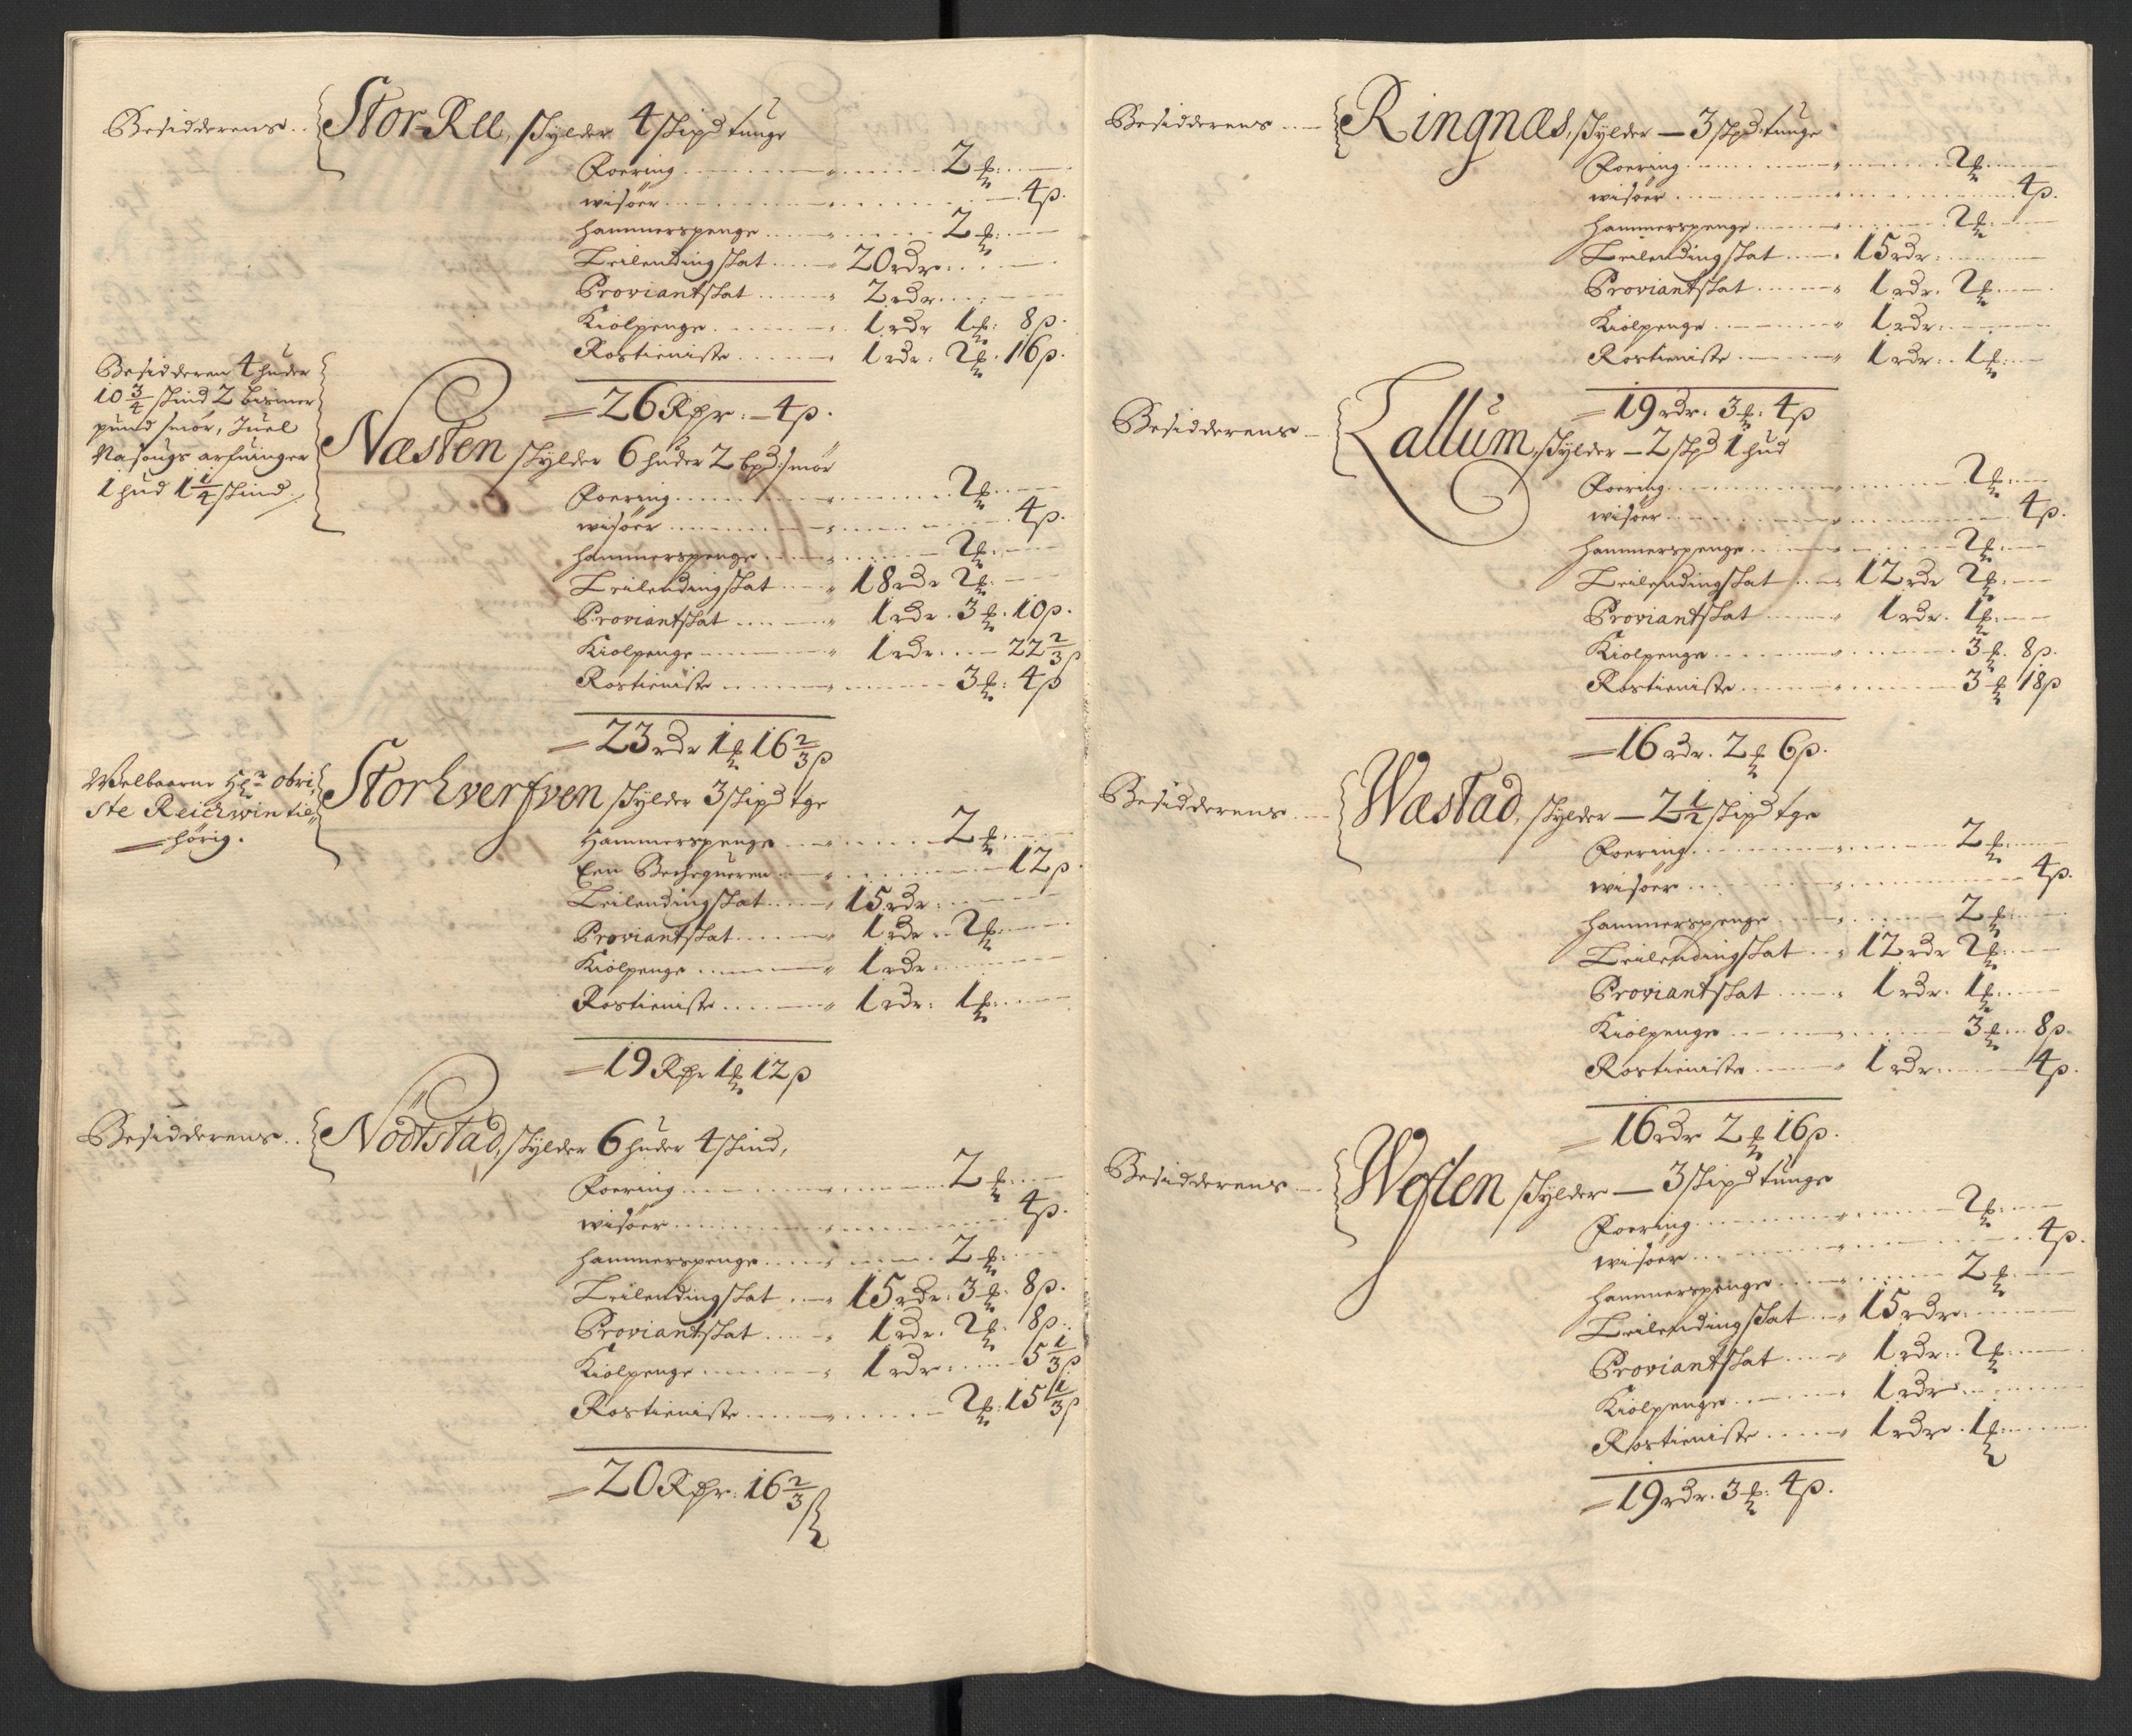 Besidderens .. Stor-Ree, skylder 4 skipd tunge
Foering ... 2 ß
wisöer ... 4 β.
hammerspenge ... 2 ß
Leilendingskat ... 20 rdr
Proviantskat ... 2 rdr
Kiolpenge ... 1 rdr 1 ß: 8 β.
Rostieniste ... 1 rdr: 2 ß. 16 β.
= 26 Rdr: - 4 β.
Besidderen 4 huder
10 3/4 skind 2 bismer
pund smör, Juel
arfuinger
1 hud 1 1/4 skind
Næsten skylder 6 huder 2 bpd: smör
Foering ... 2 ß
wisöer ... 4 β.
hammerspenge ... 2 ß
Leilendingskat ... 18 rdr 2 ß
Proviantskat ... 1 rdr. 3 ß. 10 β.
Kiolpenge ... 1 rdr. ... 22 2/3 β
Rostieniste ... 3 ß: 4 β
= 23 rdr 1 ß 16 2/3 β
Welbaarne Hr obri
ste Reichwin til,,
hörig.
Storhverfven skylder 3 skipd tge
Hammerspenge ... 2 ß
Een ... 12 β.
Leilendingskat ... 15 rdr
Proviantskat ... 1 rdr .. 2 ß
Kiolpenge ... 1 rdr
Rostieniste ... 1 rdr: 1 ß
= 19 Rdr 1 ß 12 β
Besidderens .. Nödtstad, skylder 6 huder 4 skind,
Foering ... 2 ß
wisöer ... 4 β.
hammerspenge ... 2 ß
Leilendingskat ... 15 rdr: 3 ß. 8 β.
Proviantskat ... 1 rdr. 2 ß. 8 β.
Kiolpenge ... 1 rdr ... 5 1/3 β
Rostieniste ... 2 ß: 15 1/3 β
= 20 Rdr: 16 2/3 β
Besidderens ... Ringnæs, skylder - 3 skpd: tunge
Foering ... 2 ß
wisöer ... 4 β.
hammerspenge ... 2 ß
Leilendingskat ... 15 rdr
Proviantskat ... 1 rdr. 2 ß
Kiolpenge ... 1 rdr
Rostieniste ... 1 rdr: 1 ß
= 19 rdr: 3 ß: 4 β
Besidderens - Lallum, skylder - 2 skpd 1 hud
Foering ... 2 ß
wisöer ... 4 β.
hammerspenge ... 2 ß
Leilendingskat ... 12 rdr 2 ß
Proviantskat ... 1 rdr. 1 ß
Kiolpenge ... 3 ß. 8 β.
Rostieniste ... 3 ß 18 β
= 16 rdr. 2 ß 6 β.
Besidderens ... Wæstad, skylder - 2 1/2 skipd tge
Foering ... 2 ß
wisöer ... 4 β.
hammerspenge ... 2 ß
Leilendingskat ... 12 rdr 2 ß
Proviantskat ... 1 rdr. 1 ß
Kiolpenge ... 3 ß ... 8 β.
Rostieniste ... 1 rdr ... 4 β.
= 16 rdr 2 ß 16 β.
Besidderens ... Weflen skylder - 3 skipd tunge
Foering ... 2 ß
wisöer ... 4 β.
hammerspenge ... 2 ß
Leilendingskat ... 15 rdr
Proviantskat ... 1 rdr. 2 ß
Kiolpenge ... 1 rdr
Rostieniste ... 1 rdr. 1 ß
= 19 rdr. 3 ß: 4 β.